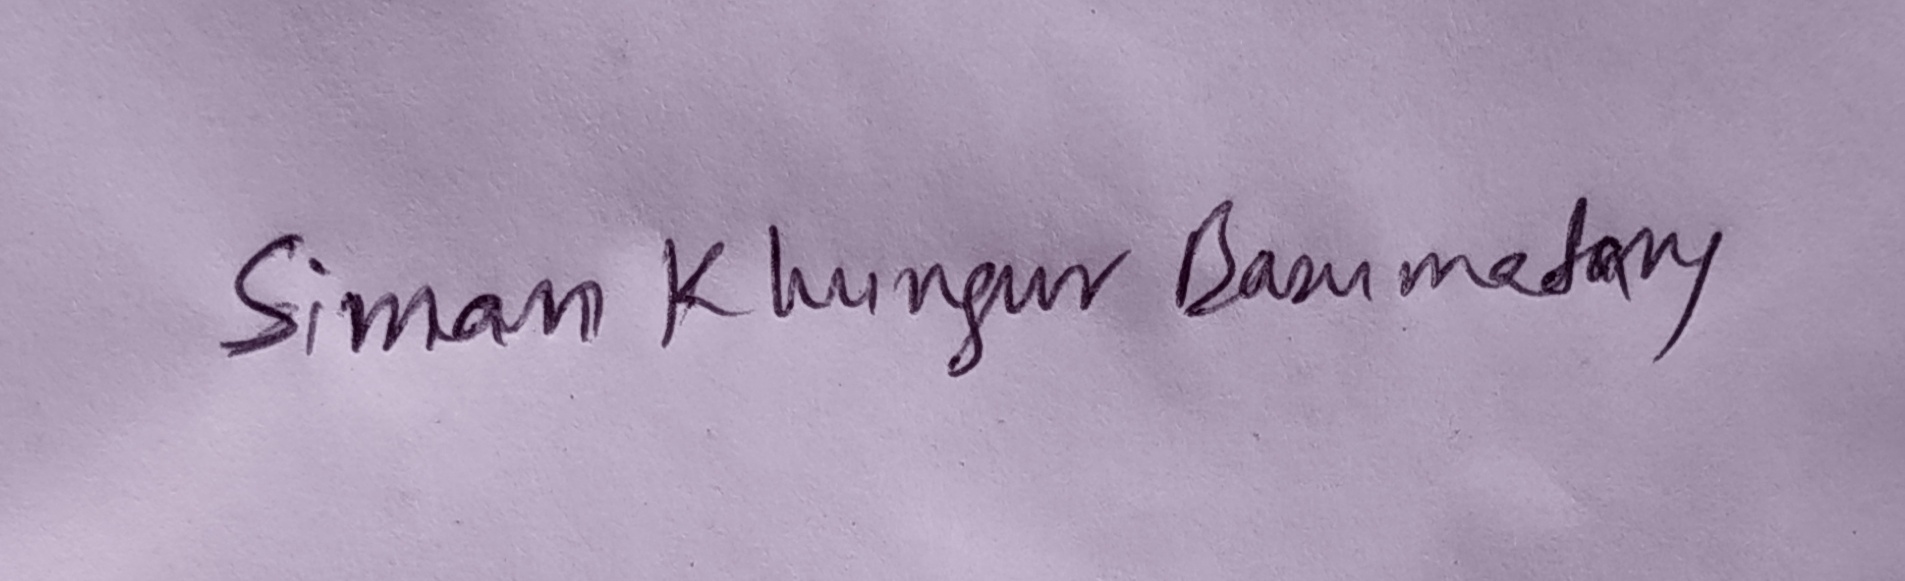 Siman Khungur Basumatary